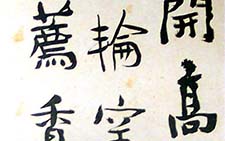 開高
輪空
薦香